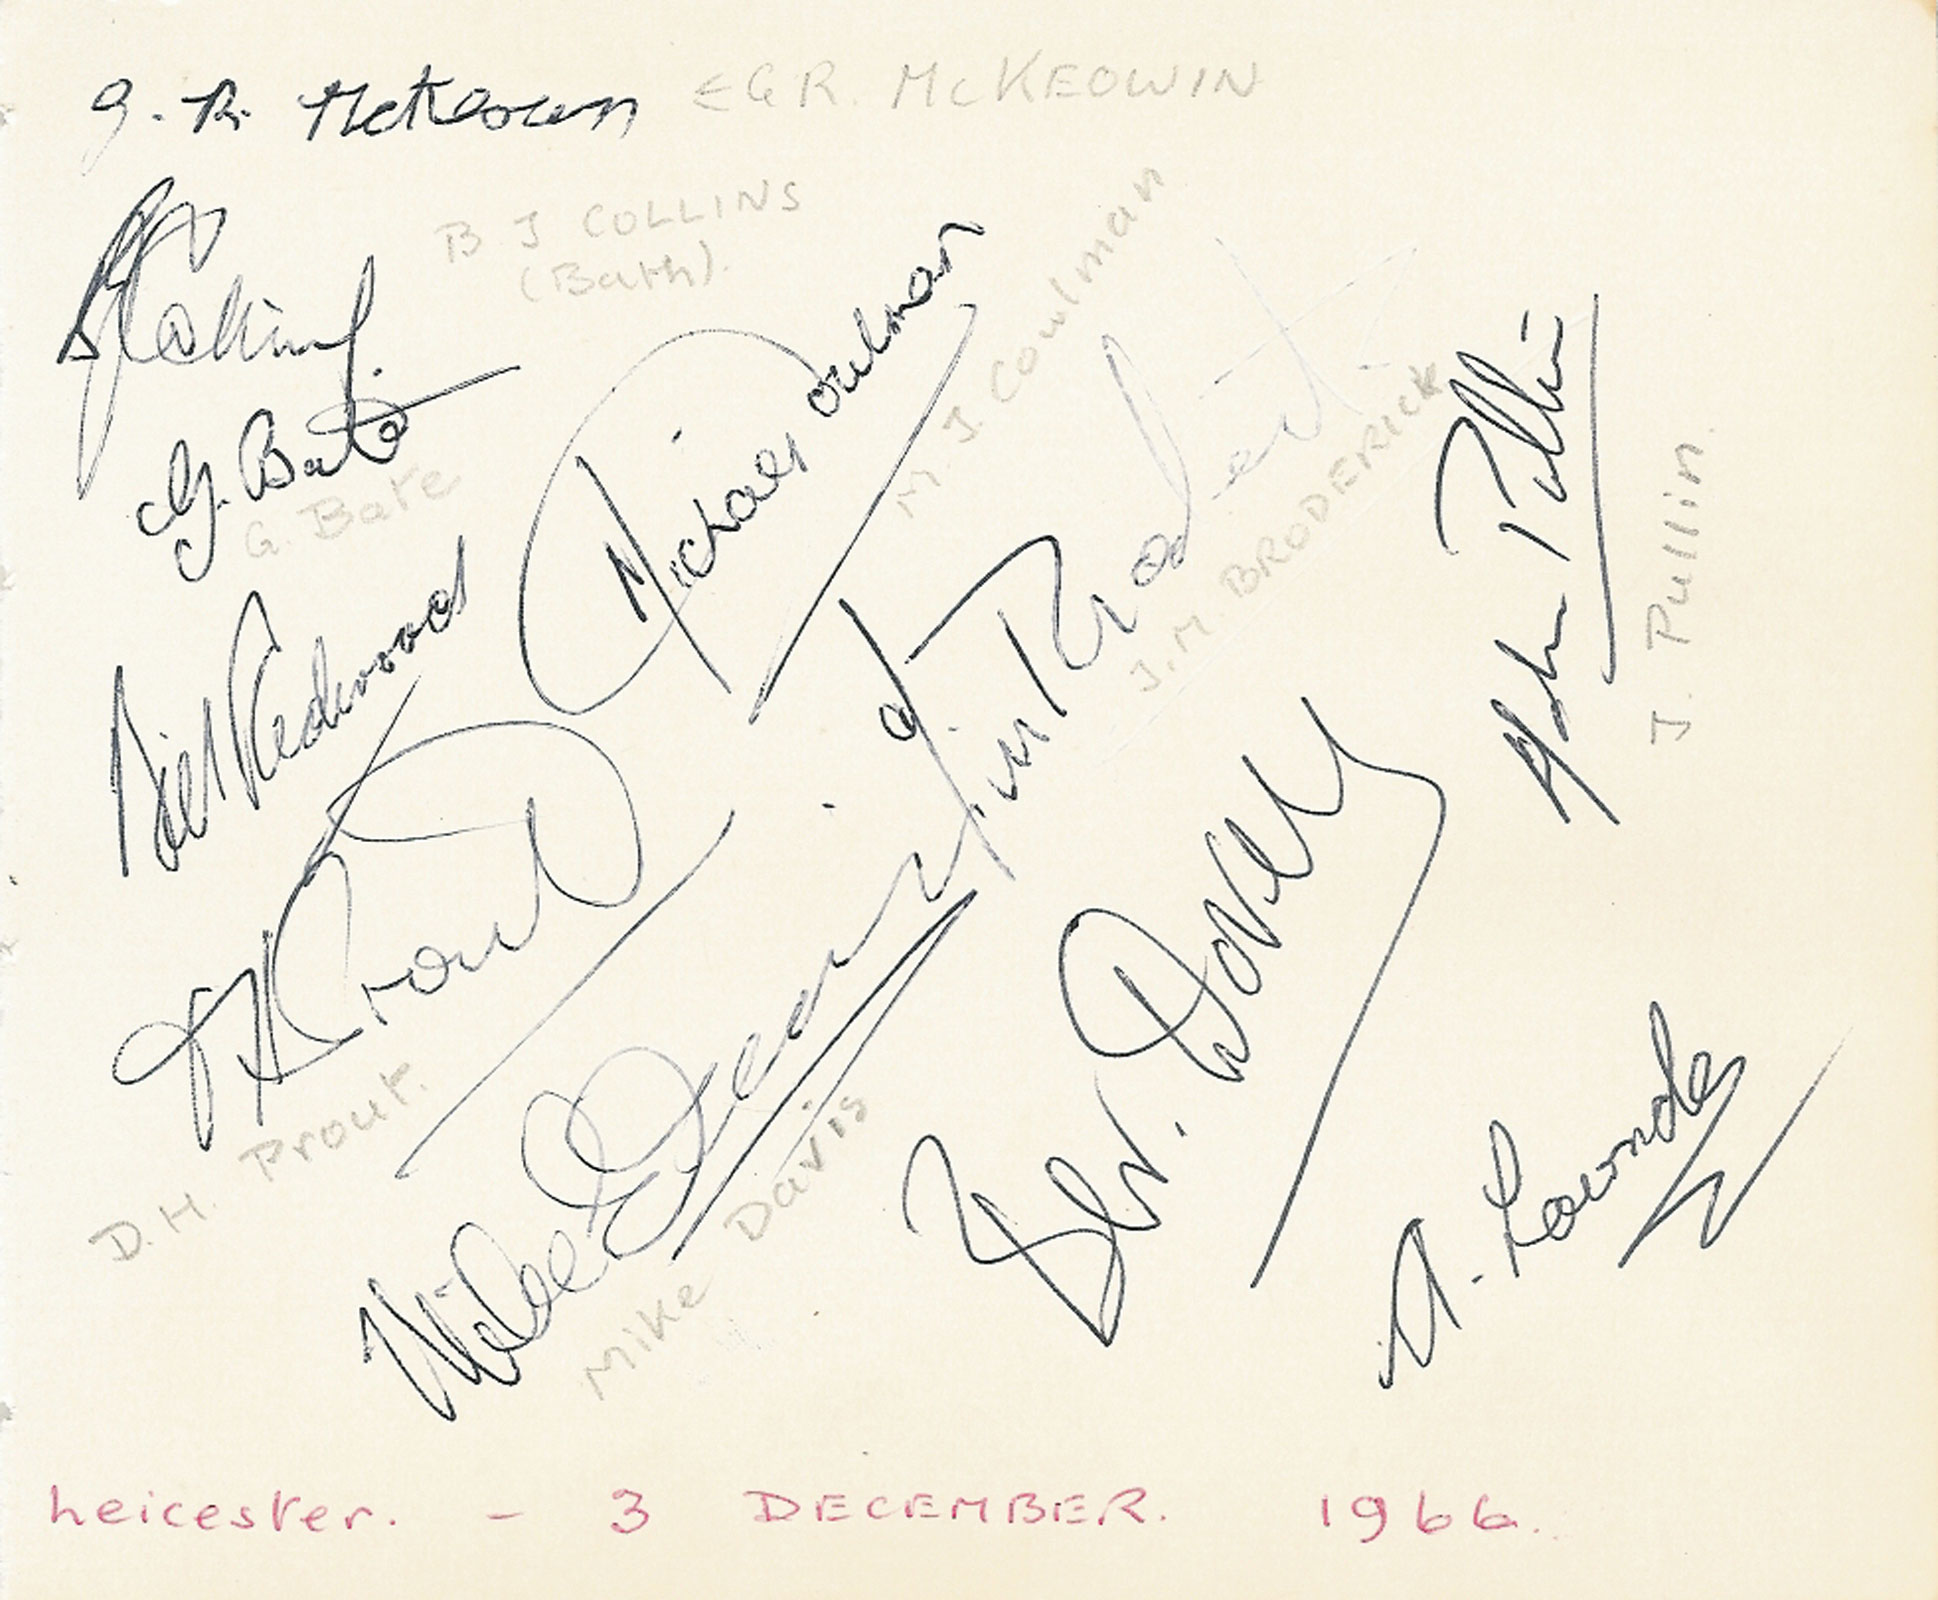 G. R. McKeown
EGR. McKEOWIN
B J COLLINS
(Bath).
BJCollins
G. Bate
G. Bate
Michael Coulman
M. J. Coulman
Bill Redwood
J. M. BRODERICK
John Pullin
J. Pullin.
D H Prout
D. H. Prout.
Mike Davis
Bev. Dovey
A. Lowndes
Leicester. - 3 DECEMBER. 1966.